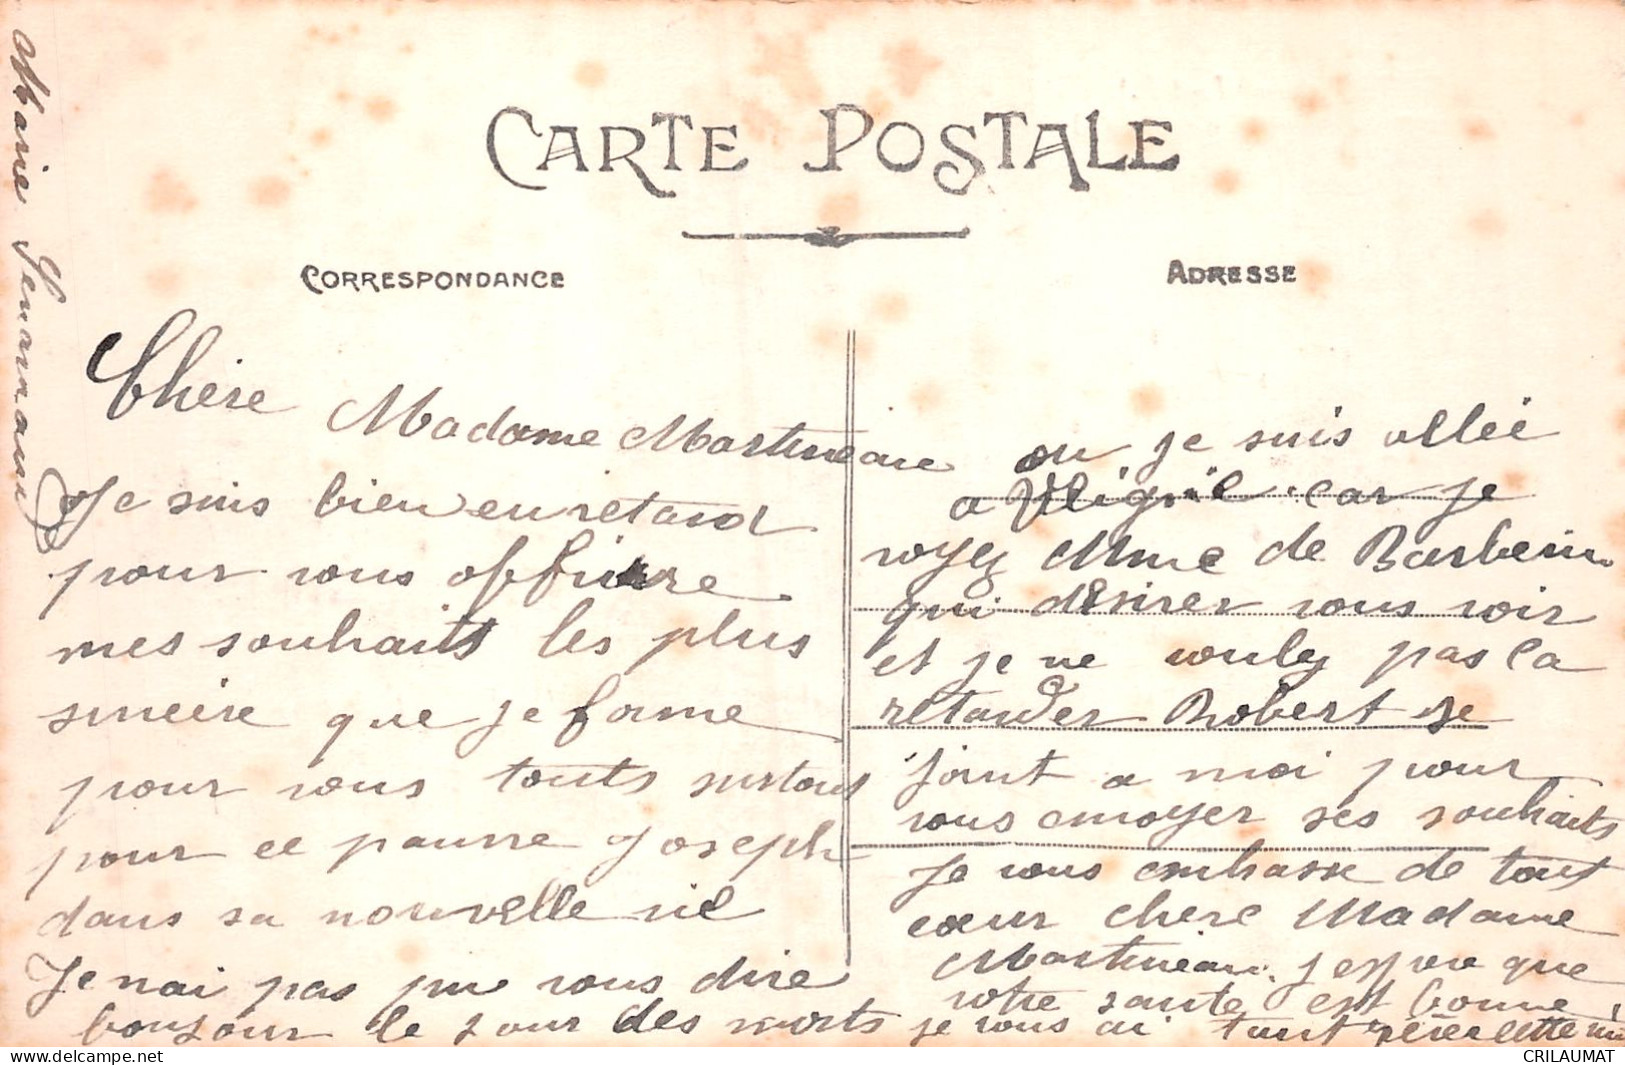 CARTE POSTALE
CORRESPONDANCE
ADRESSE
Chère Madame Martineau
Je suis bien en retard
pour vous offrire
mes souhaits les plus
sincère que je forme
pour vous touts surtout
pour ce pauvre Joseph
dans sa nouvelle vie
Je nai pas pu vous dire
bonjour le jour des morts je vous ai tant
ou je suis allée
a car je
voyez Mme de
qui désirer vous voir
et je ne vouley pas la
retarder Robert se
joint a moi pour
vous envoyer ses souhaits
Je vous embrasse de tout
cœur chere Madame
Martineau. Jespere que
votre santé est bonne
Marie
CRILAUMAT